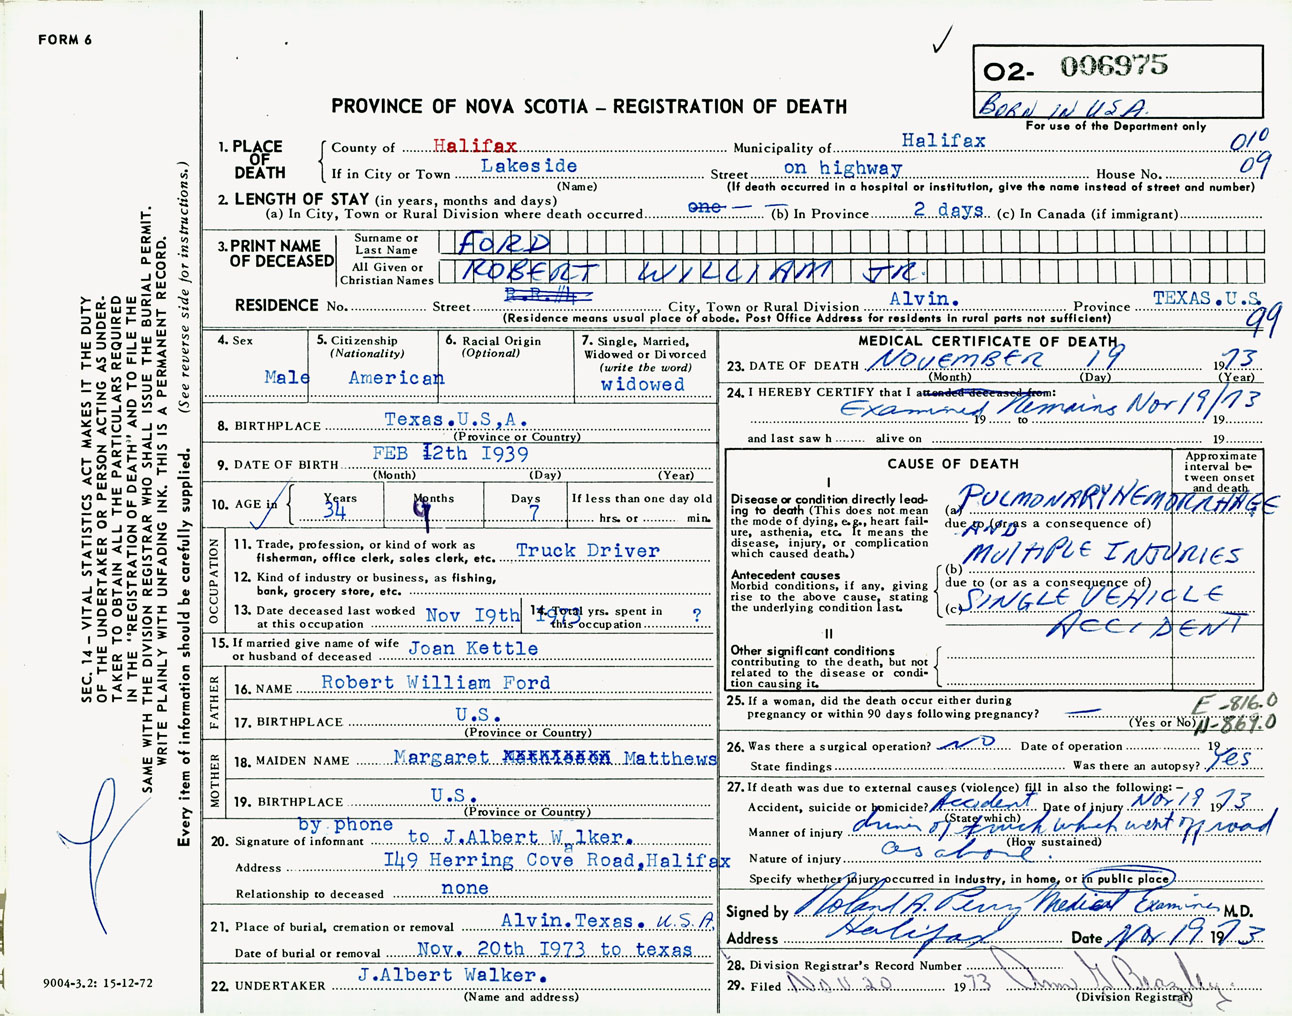 FORM 6
O2- 006975
BORN IN USA.
For use of the Department only
PROVINCE OF NOVA SCOTIA – REGISTRATION OF DEATH
1. PLACE OF DEATH
County of Halifax Municipality of Halifax 010
If in City or Town Lakeside Street on highway House No. 09
(Name) (If death occurred in a hospital or institution, give the name instead of street and number)
2. LENGTH OF STAY (in years, months and days)
(a) In City, Town or Rural Division where death occurred one — — (b) In Province 2 days (c) In Canada (if immigrant)
3. PRINT NAME OF DECEASED
Surname or Last Name FORD
All Given or Christian Names ROBERT WILLIAM JR.
R.R.#4
RESIDENCE No. Street City, Town or Rural Division Alvin. Province TEXAS.U.S.
(Residence means usual place of abode. Post Office Address for residents in rural parts not sufficient) 99
4. Sex Male
5. Citizenship (Nationality) American
6. Racial Origin (Optional)
7. Single, Married, Widowed or Divorced (write the word) widowed
8. BIRTHPLACE Texas.U.S,A.
(Province or Country)
9. DATE OF BIRTH FEB 12th I939
(Month) (Day) (Year)
10. AGE in Years 34 Months 9 Days 7 If less than one day old hrs. or min.
OCCUPATION
11. Trade, profession, or kind of work as fisherman, office clerk, sales clerk, etc. Truck Driver
12. Kind of industry or business, as fishing, bank, grocery store, etc.
13. Date deceased last worked at this occupation Nov I9th I973
14. Total yrs. spent in this occupation ?
15. If married give name of wife or husband of deceased Joan Kettle
FATHER
16. NAME Robert William Ford
17. BIRTHPLACE U.S.
(Province or Country)
MOTHER
18. MAIDEN NAME Margaret Matthews
19. BIRTHPLACE U.S.
(Province or Country)
by phone
20. Signature of informant to J.Albert Walker.
Address I49 Herring Cove Road,Halifax
Relationship to deceased none
21. Place of burial, cremation or removal Alvin.Texas. U.S.A.
Date of burial or removal Nov. 20th I973 to texas
22. UNDERTAKER J.Albert Walker.
(Name and address)
MEDICAL CERTIFICATE OF DEATH
23. DATE OF DEATH NOVEMBER 19 1973
(Month) (Day) (Year)
24. I HEREBY CERTIFY that I attended deceased from:
Examined Remains Nov 19/73
19 to 19
and last saw h alive on 19
CAUSE OF DEATH
Approximate interval between onset and death
I
Disease or condition directly leading to death (This does not mean the mode of dying, e.g., heart failure, asthenia, etc. It means the disease, injury, or complication which caused death.)
(a) PULMONARY HEMORRHAGE
due to (or as a consequence of)
AND
MULTIPLE INJURIES
Antecedent causes
Morbid conditions, if any, giving rise to the above cause, stating the underlying condition last.
(b)
due to (or as a consequence of)
(c) SINGLE VEHICLE
ACCIDENT
II
Other significant conditions
contributing to the death, but not related to the disease or condition causing it.
25. If a woman, did the death occur either during pregnancy or within 90 days following pregnancy? —
(Yes or No)
E -816.0
N-869.0
26. Was there a surgical operation? NO Date of operation 19
State findings Was there an autopsy? Yes
27. If death was due to external causes (violence) fill in also the following: –
Accident, suicide or homicide? Accident Date of injury Nov 19 1973
(State which)
Manner of injury driver of truck which went off road
(How sustained)
Nature of injury as above.
Specify whether injury occurred in industry, in home, or in public place
Signed by Roland A. Perry Medical Examiner M.D.
Address Halifax Date Nov 19 1973
28. Division Registrar's Record Number
29. Filed NOV 20 1973
(Division Registrar)
SEC. 14 – VITAL STATISTICS ACT MAKES IT THE DUTY
OF THE UNDERTAKER OR PERSON ACTING AS UNDER-
TAKER TO OBTAIN ALL THE PARTICULARS REQUIRED
IN THE "REGISTRATION OF DEATH" AND TO FILE THE
SAME WITH THE DIVISION REGISTRAR WHO SHALL ISSUE THE BURIAL PERMIT.
WRITE PLAINLY WITH UNFADING INK. THIS IS A PERMANENT RECORD.
Every item of information should be carefully supplied. (See reverse side for instructions.)
9004-3.2: 15-12-72